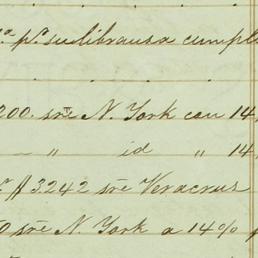 pª su librausa cumpl
200. sre N. York con 14,
— " id " 14,
$3.242 sre Veracrus
0 sre N. York a 14%